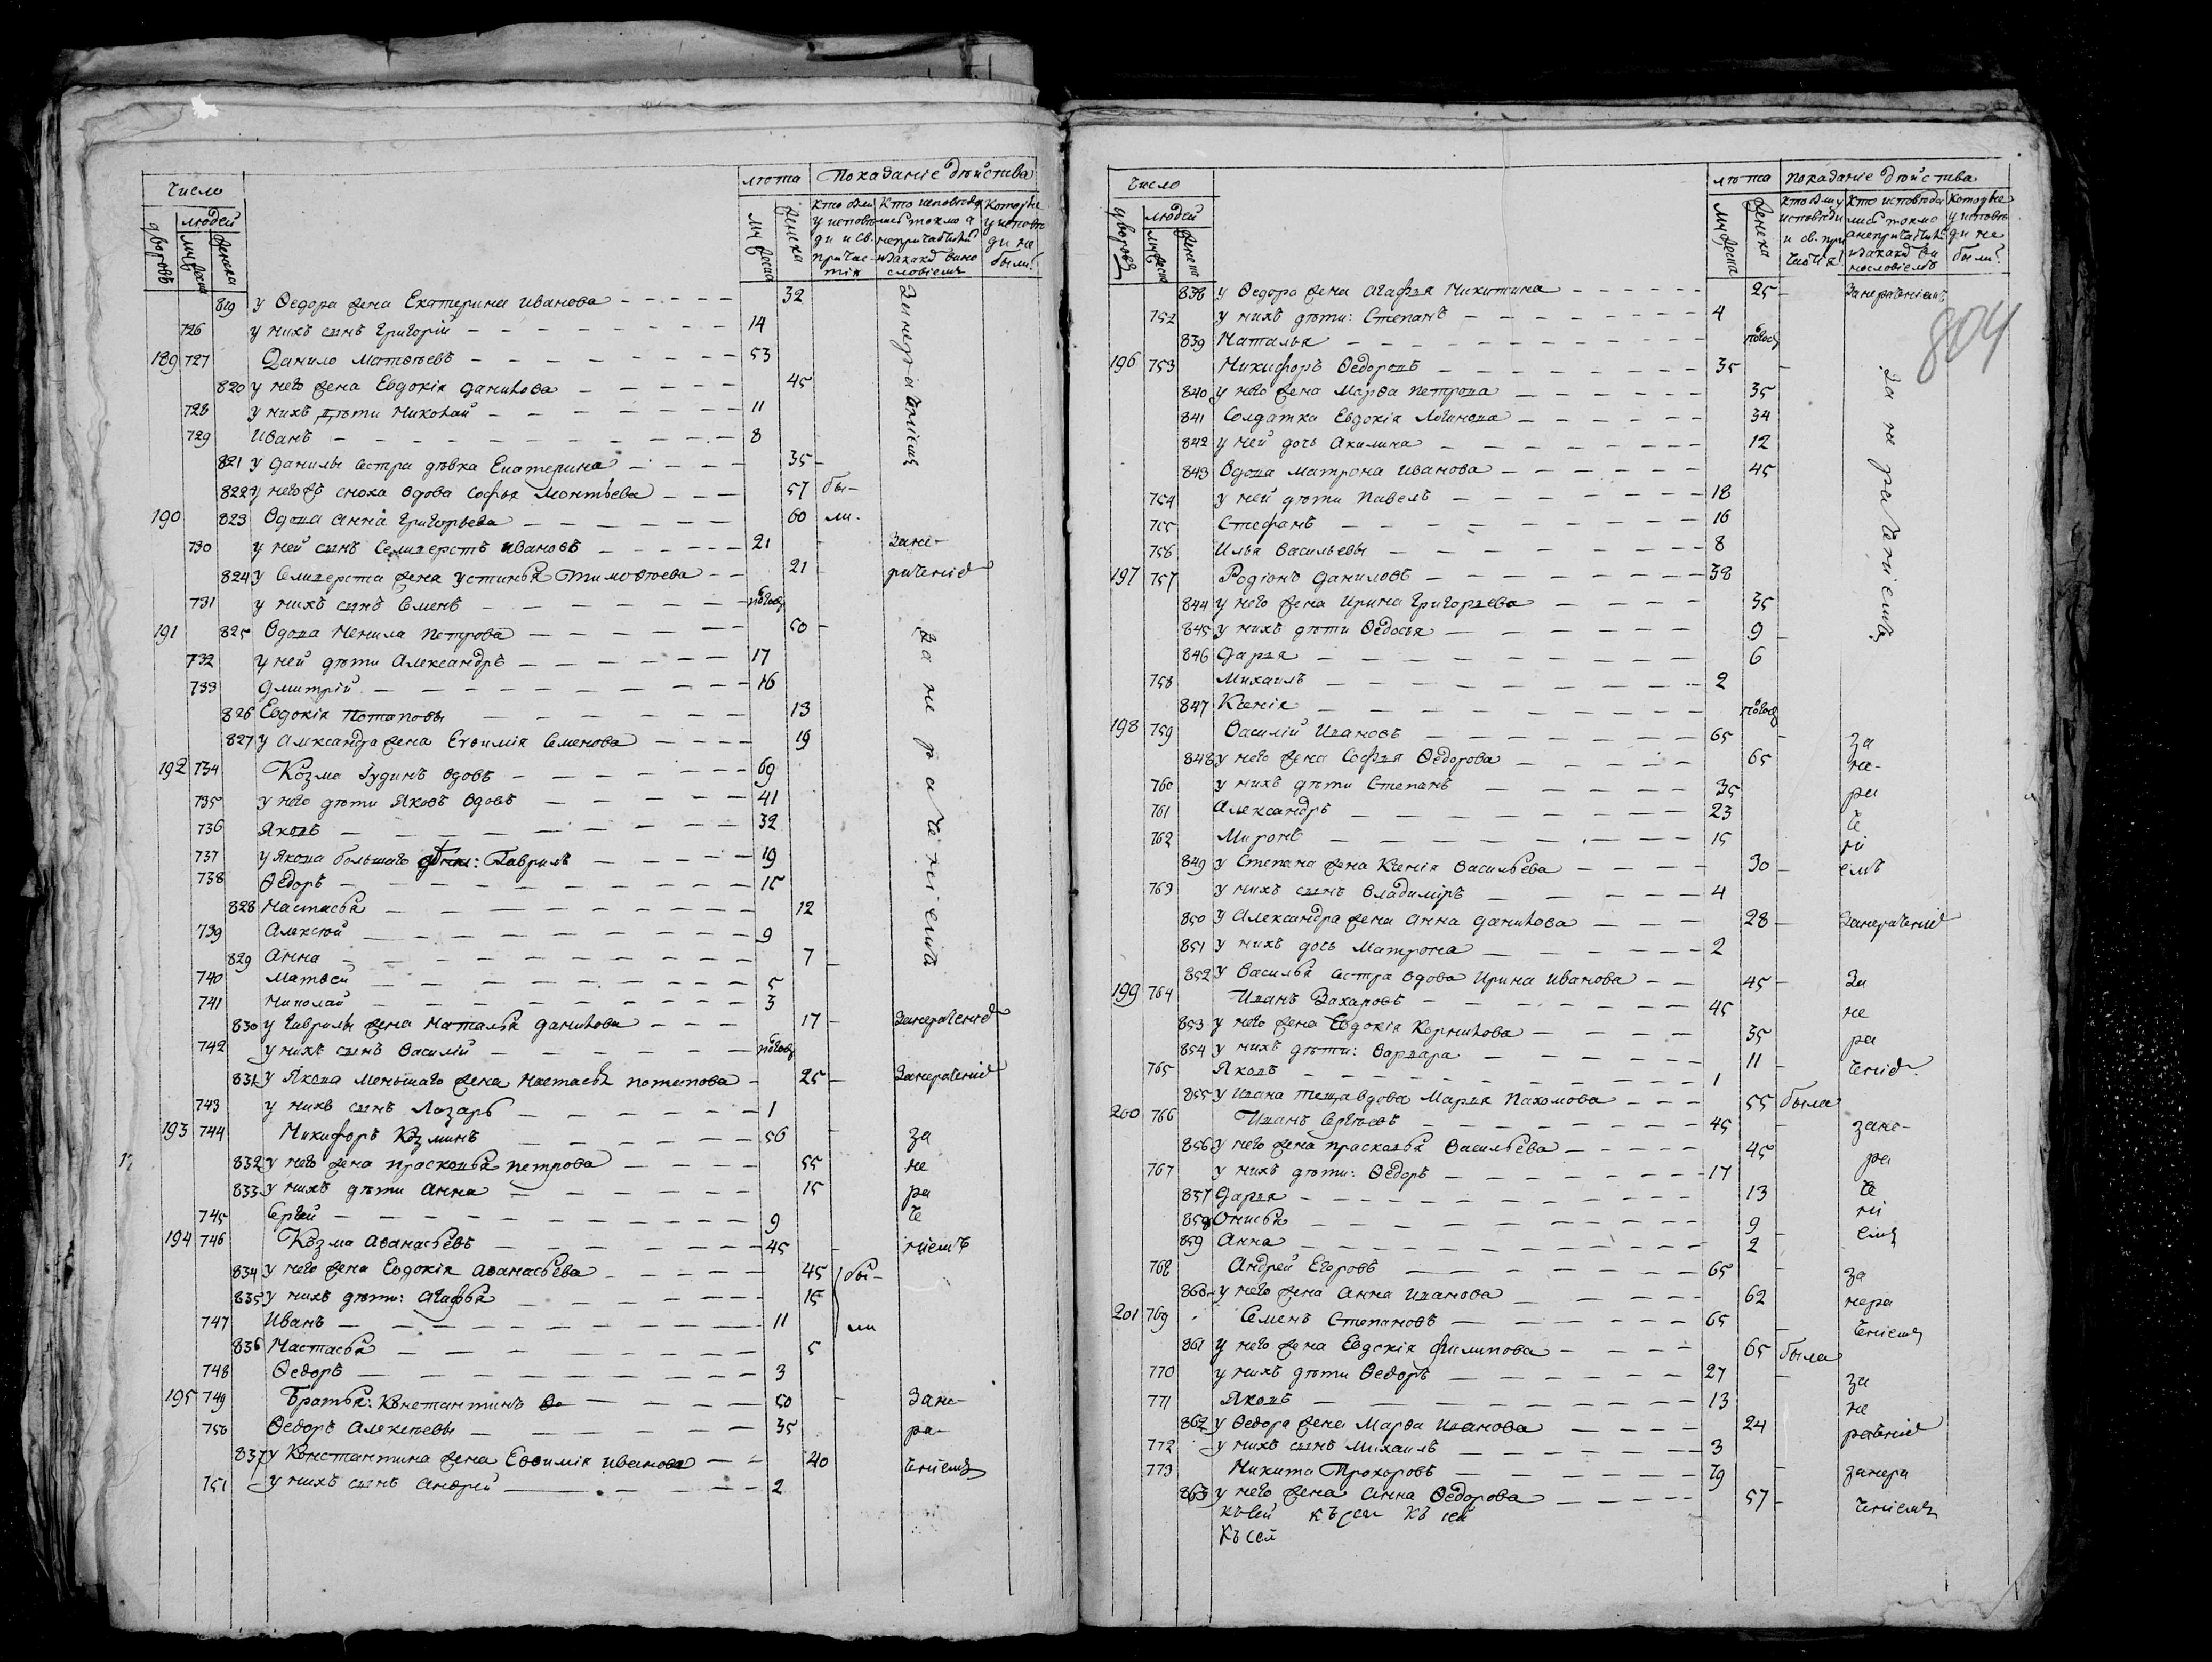 Число
лѣта Показаніе дѣйства
дворовъ
людей
мужеска
женска
мужеска
женска
Кто были у исповѣди и св. причастія
Кто исповѣдались токмо а непричастились и за какимъ винословіемъ
Которые у исповѣди не были?
819 у Ѳедора жена Екатерина Иванова 32
726 у нихъ сынъ Григорій 14
189 727 Данило Матвѣевъ 53
820 у него жена Евдокія Данилова 45
728 у нихъ дѣти Николай 11
729 Иванъ 8
821 у Данилы сестра дѣвка Екатерина 35
822 у негожъ сноха вдова Софья Леонтьева 57 бы-
190 823 Вдова Анна Григорьева 60 ли.
730 у ней сынъ Селиверстъ Ивановъ 21 Зане-
824 у Селиверста жена Устинья Тимоѳеева 21 раченіемъ
731 у нихъ сынъ Семенъ полгода
191 825 Вдова Ненила Петрова 50
732 у ней дѣти Александръ 17
733 Дмитрій 16
826 Евдокія Потаповы 13
827 у Александра жена Евѳимія Семенова 19
192 734 Козма Іудинъ вдовъ 69
735 у него дѣти Яковъ вдовъ 41
736 Яковъ 32
737 у Якова большаго дѣти: Гаврилъ 19
738 Ѳедоръ 15
828 Настасья 12
739 Алексѣй 9
829 Анна 7
740 Матвей 5
741 Николай 3
830 у Гаврилы жена Наталья Данилова 17 Занераченіемъ
742 у нихъ сынъ Василій полгода
831 у Якова меньшаго жена Настасья Потапова 25 Занераченіемъ
743 у нихъ сынъ Лазарь 1
193 744 Никифоръ Козминъ 56 за
832 у него жена Прасковья Петрова 55 не
833 у нихъ дѣти Анна 15 ра
745 Сергѣй 9 че
194 746 Козма Аѳанасьевъ 45 ніемъ
834 у него жена Евдокія Аѳанасьева 45 бы-
835 у нихъ дѣти: Агафья 15
747 Иванъ 11 ли
836 Настасья 5
748 Ѳедоръ 3
195 749 Братья: Константинъ 50 Зане-
750 Ѳедоръ Алексѣевы 35 ра-
837 у Константина жена Евѳимія Иванова 40 ченіемъ
751 у нихъ сынъ Андрей 2
Занераченіемъ
Занераченіемъ
804
Число
лѣта Показаніе дѣйства
дворовъ
людей
мужеска
женска
мужеска
женска
Кто были у исповѣди и св. причастія
Кто исповѣдались токмо а непричастились и за какимъ винословіемъ
Которые у исповѣди не были?
838 у Ѳедора жена Агафья Никитина 25 Занераченіемъ
752 у нихъ дѣти: Степанъ 4
839 Наталья полгода
196 753 Никифоръ Ѳедоровъ 35
840 у него жена Марѳа Петрова 35
841 Солдатка Евдокія Логинова 34
842 у ней дочь Акилина 12
843 Вдова Матрона Иванова 45
754 у ней дѣти Павелъ 18
755 Стефанъ 16
756 Илья Васильевы 8
197 757 Родіонъ Даниловъ 38
844 у него жена Ирина Григорьева 35
845 у нихъ дѣти Ѳедосья 9
846 Дарья 6
758 Михаилъ 2
847 Ксенія полгода
Занераченіемъ
198 759 Василій Ивановъ 65 за
848 у него жена Софья Ѳедорова 65 не-
760 у нихъ дѣти Степанъ 35 ра
761 Александръ 23 че
762 Миронъ 15 ні
849 у Степана жена Ксенія Васильева 30 емъ
763 у нихъ сынъ Владиміръ 4
850 у Александра жена Анна Данилова 28 Занераченіемъ
851 у нихъ дочь Матрона 2
852 у Василья сестра вдова Ирина Иванова 45 За
199 764 Иванъ Захаровъ 45 не
853 у него жена Евдокія Корнилова 35 ра
854 у нихъ дѣти: Варвара 11 ченіемъ
765 Яковъ 1
855 у Ивана теща вдова Марья Пахомова 55 была
200 766 Иванъ Сергѣевъ 45 зане-
856 у него жена Прасковья Васильева 45 ра
767 у нихъ дѣти: Ѳедоръ 17
857 Дарья 13 че
858 Онисья 9 ні
859 Анна 2 емъ
768 Андрей Егоровъ 65 за
860 у него жена Анна Иванова 62 нера
201 769 Семенъ Степановъ 65 ченіемъ
861 у него жена Евдокія Филипова 65 была
770 у нихъ дѣти Ѳедоръ 27 за
771 Яковъ 13 не
862 у Ѳедора жена Марѳа Иванова 24 раченіемъ
772 у нихъ сынъ Михаилъ 3
773 Никита Прохоровъ 79 занера
863 у него жена Анна Ѳедорова 57 ченіемъ
Къ сей къ сей къ сей
Къ сей